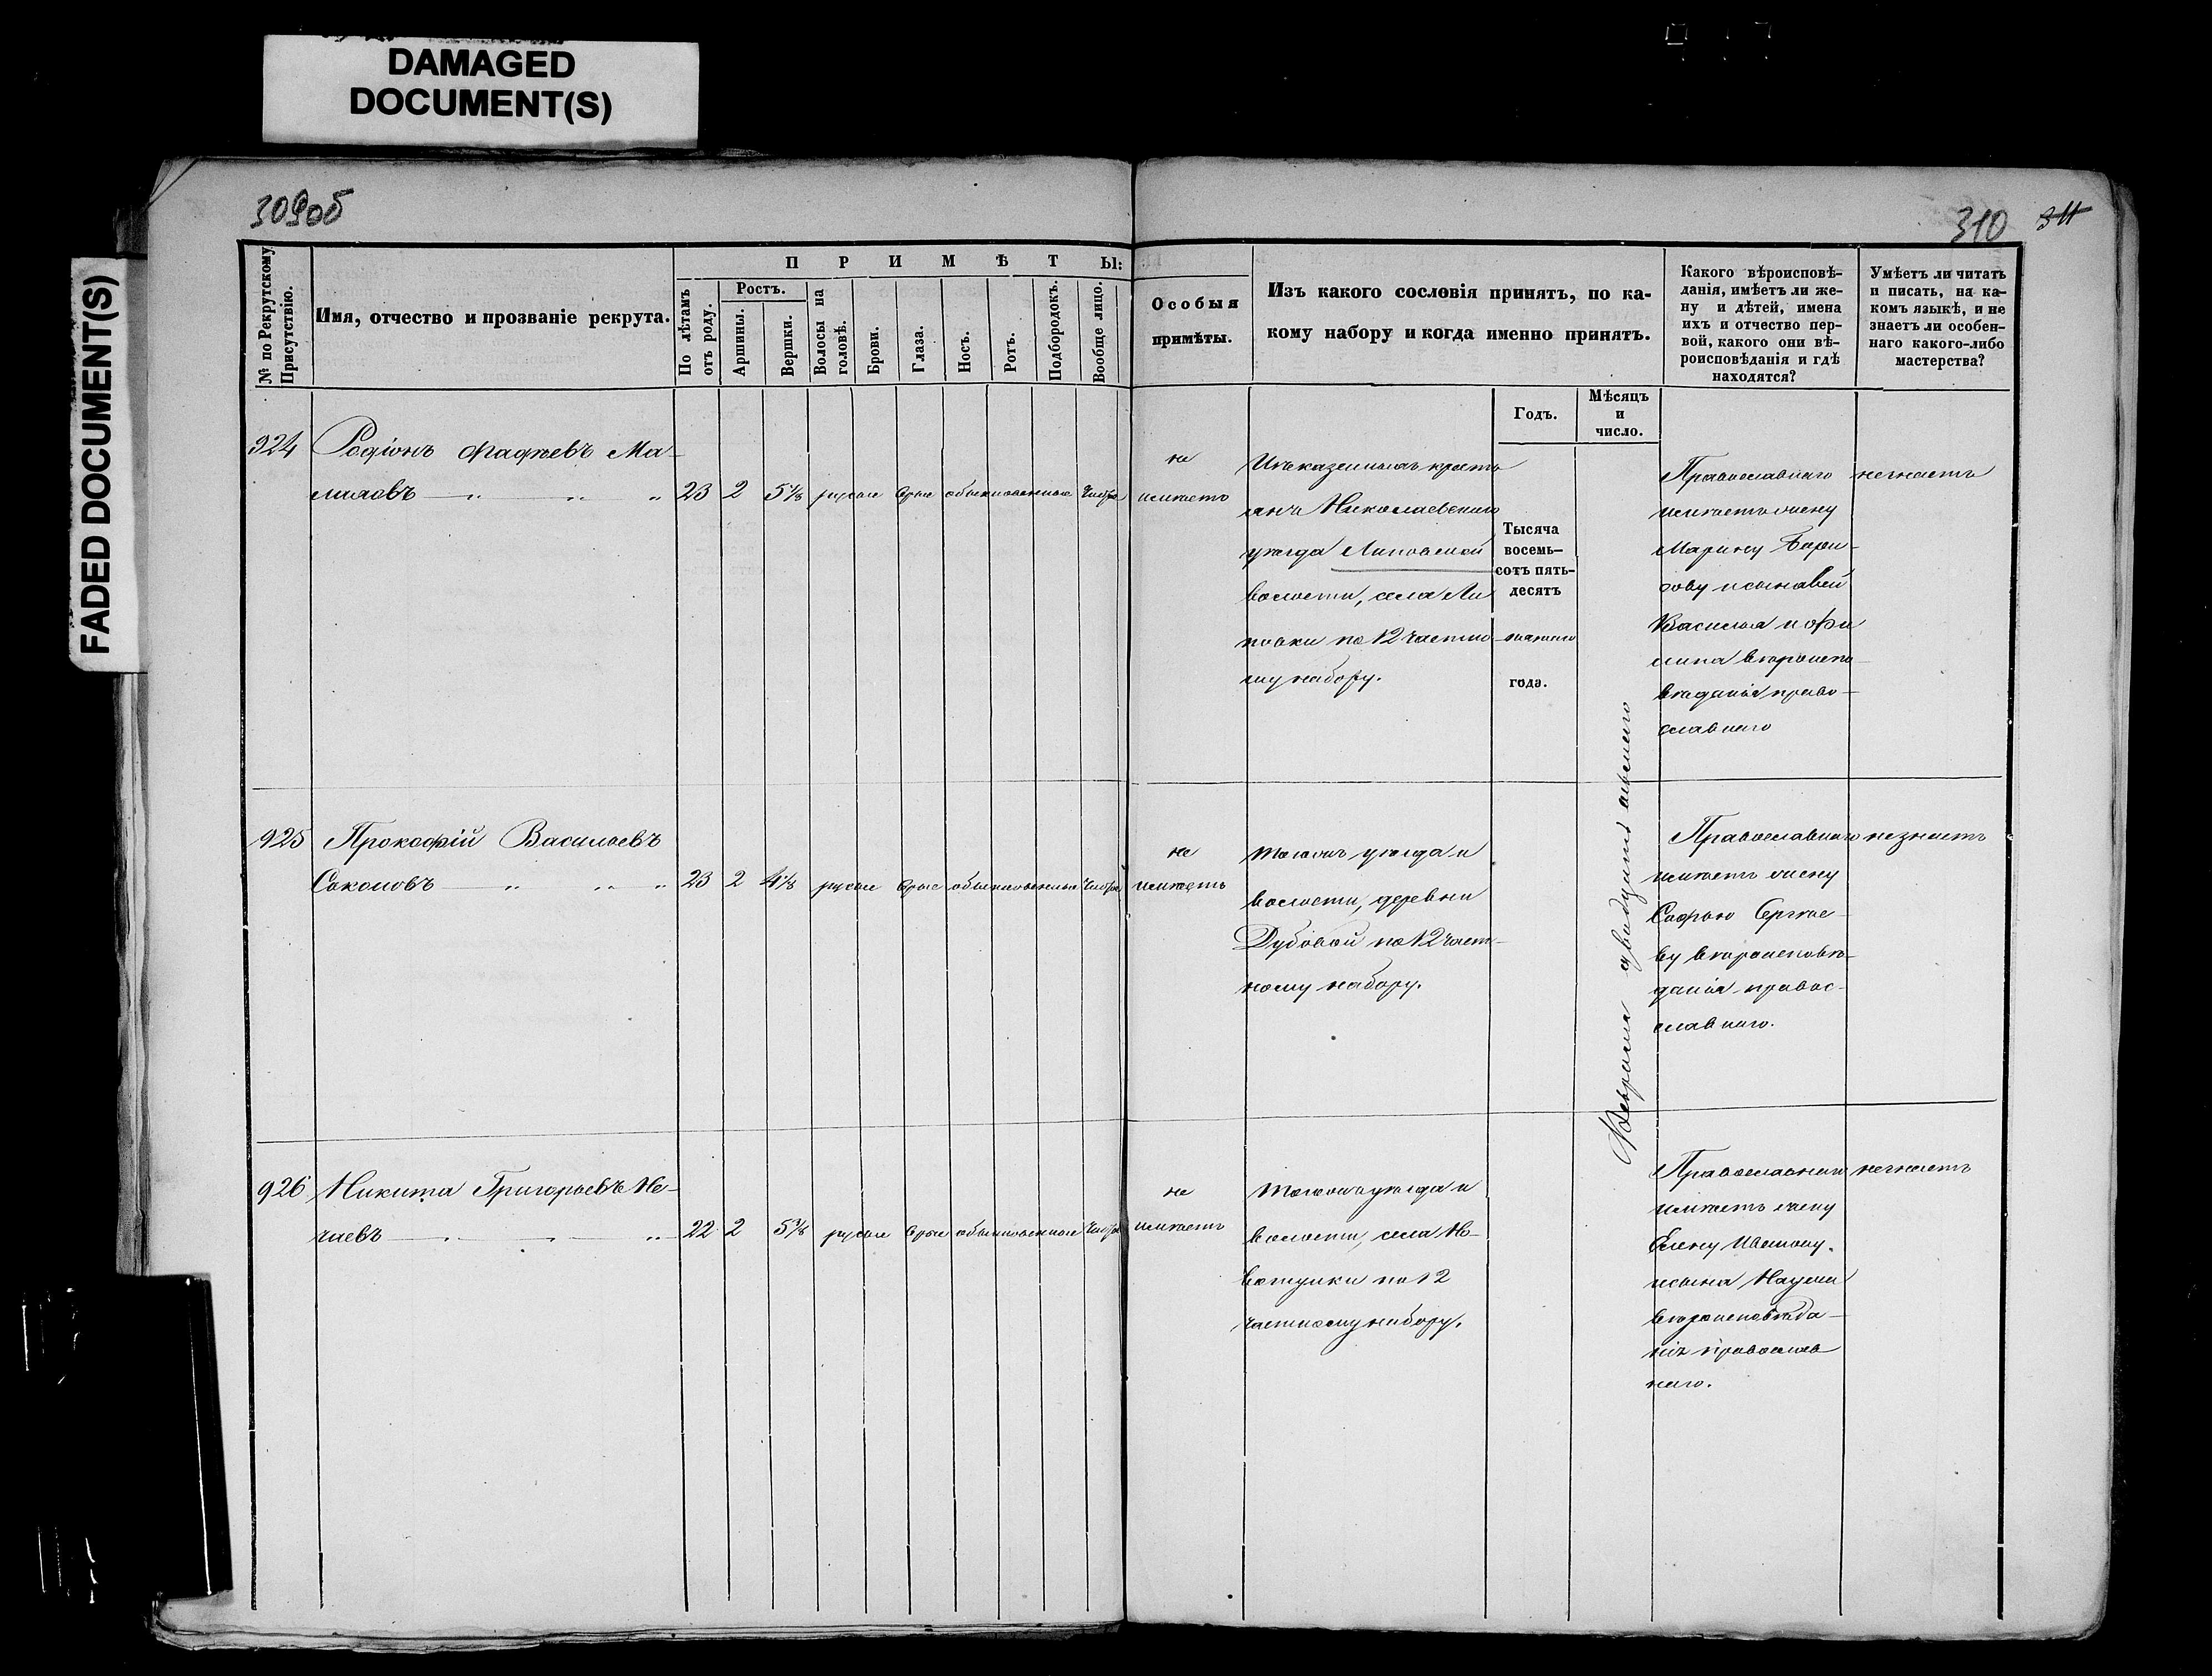 DAMAGED
DOCUMENT(S)
FADED DOCUMENT(S)
309об
310 311
№ по Рекрутскому
Присутствію.
Имя, отчество и прозваніе рекрута.
ПРИМѢТЫ:
По лѣтамъ
отъ роду.
Ростъ.
Аршины.
Вершки.
Волосы на
головѣ.
Брови.
Глаза.
Носъ.
Ротъ.
Подбородокъ.
Вообще лицо.
Особыя
примѣты.
Изъ какого сословія принятъ, по ка-
кому набору и когда именно принятъ.
Годъ.
Мѣсяцъ
и
число.
Какого вѣроисповѣ-
данія, имѣетъ ли же-
ну и дѣтей, имена
ихъ и отчество пер-
вой, какого они вѣ-
роисповѣданія и гдѣ
находятся?
Умѣетъ ли читать
и писать, на ка-
комъ языкѣ, и не
знаетъ ли особен-
наго какого-либо
мастерства?
924 Родіонъ Фадѣевъ Ма-
23 2 5 1/8 русые сѣрые обыкновенные чистое
не
имѣетъ
Изъ казенныхъ кресть
янъ Николаевскаго
уѣзда Липовской
волости, села Ли
повки по 12 частно
му набору.
Тысяча
восемь-
сотъ пять-
десятъ
пятаго
года.
Православнаго
имѣетъ жену
Марину Бори-
сову и сыновей
Василья и Фи
липа вѣроиспо-
вѣданія право-
славнаго
незнаетъ
925 Прокофій Васильевъ
Соколовъ 23 2 4 1/8 русые сѣрые обыкновенные чистое
не
имѣетъ
тогожъ уѣзда и
волости, деревни
Дубовой по 12 част-
ному набору.
Православнаго
имѣетъ жену
Софью Сергѣе-
ву вѣроисповѣ-
данія правос-
лавнаго.
незнаетъ
926 Никита Григорьевъ Не-
чаевъ 22 2 5 3/8 русые сѣрые обыкновенные чистое
не
имѣетъ
тогожъ уѣзда и
волости, села Но-
вотулки по 12
частному набору.
Православнаго
имѣетъ жену
Елену Иванову,
и сына Наума
вѣроисповѣда-
нія православ
наго.
незнаетъ
Февраля двадцать осьмаго